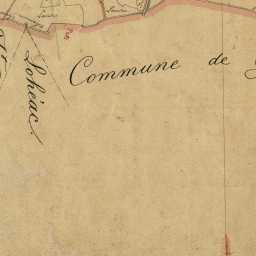 Commune de
Lohéac